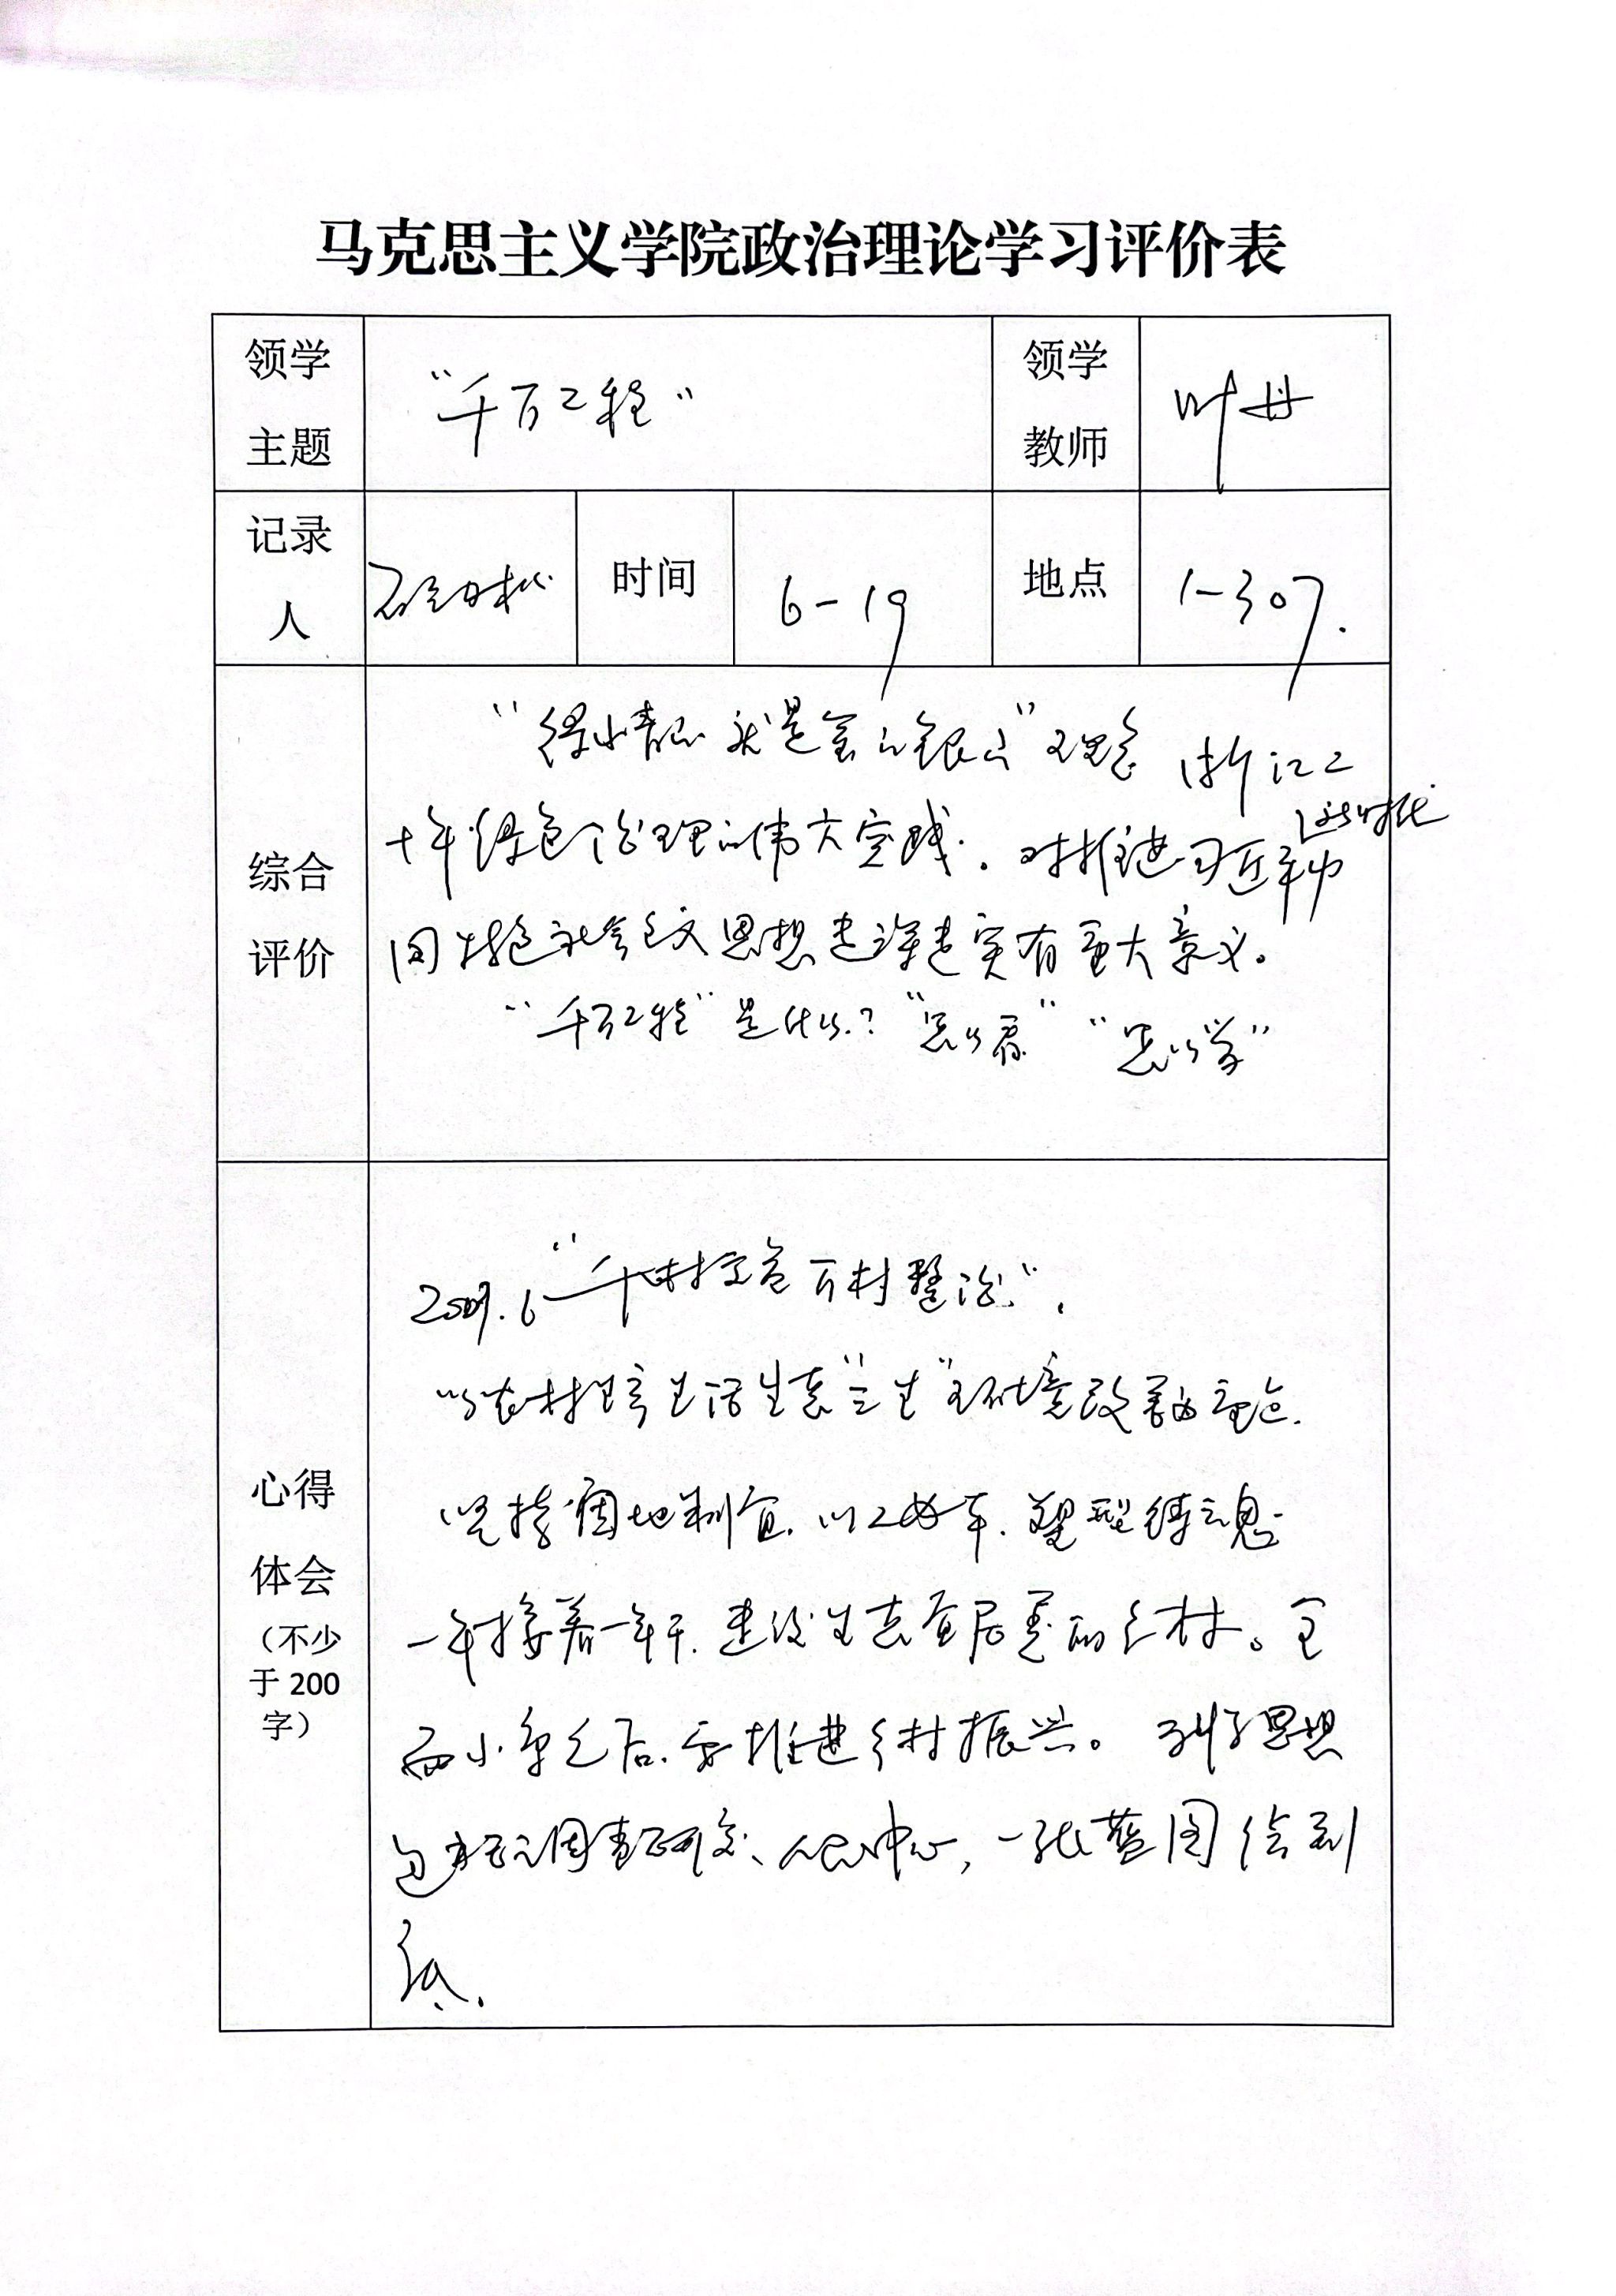 马克思主义学院政治理论学习评价表
领学主题 “千万工程” 领学教师 叶丹
记录人 时间 6-19 地点 1-307.
综合评价
“绿水青山就是金山银山”理念 浙江二
十年绿色治理的伟大实践. 对推进习近平新时代中
国特色社会主义思想走深走实有重大意义。
“千万工程”是什么? “怎么看” “怎么学”
心得体会(不少于200字)
“千村示范万村整治”,
以农村生产生活生态“三生”环境改善为重点.
坚持因地制宜. 塑型铸魂
一年接着一年干. 建设生态宜居美丽乡村。全
面小康之后, 要推进乡村振兴。 科学思想
包括调查研究、人民中心, 一张蓝图绘到
底.